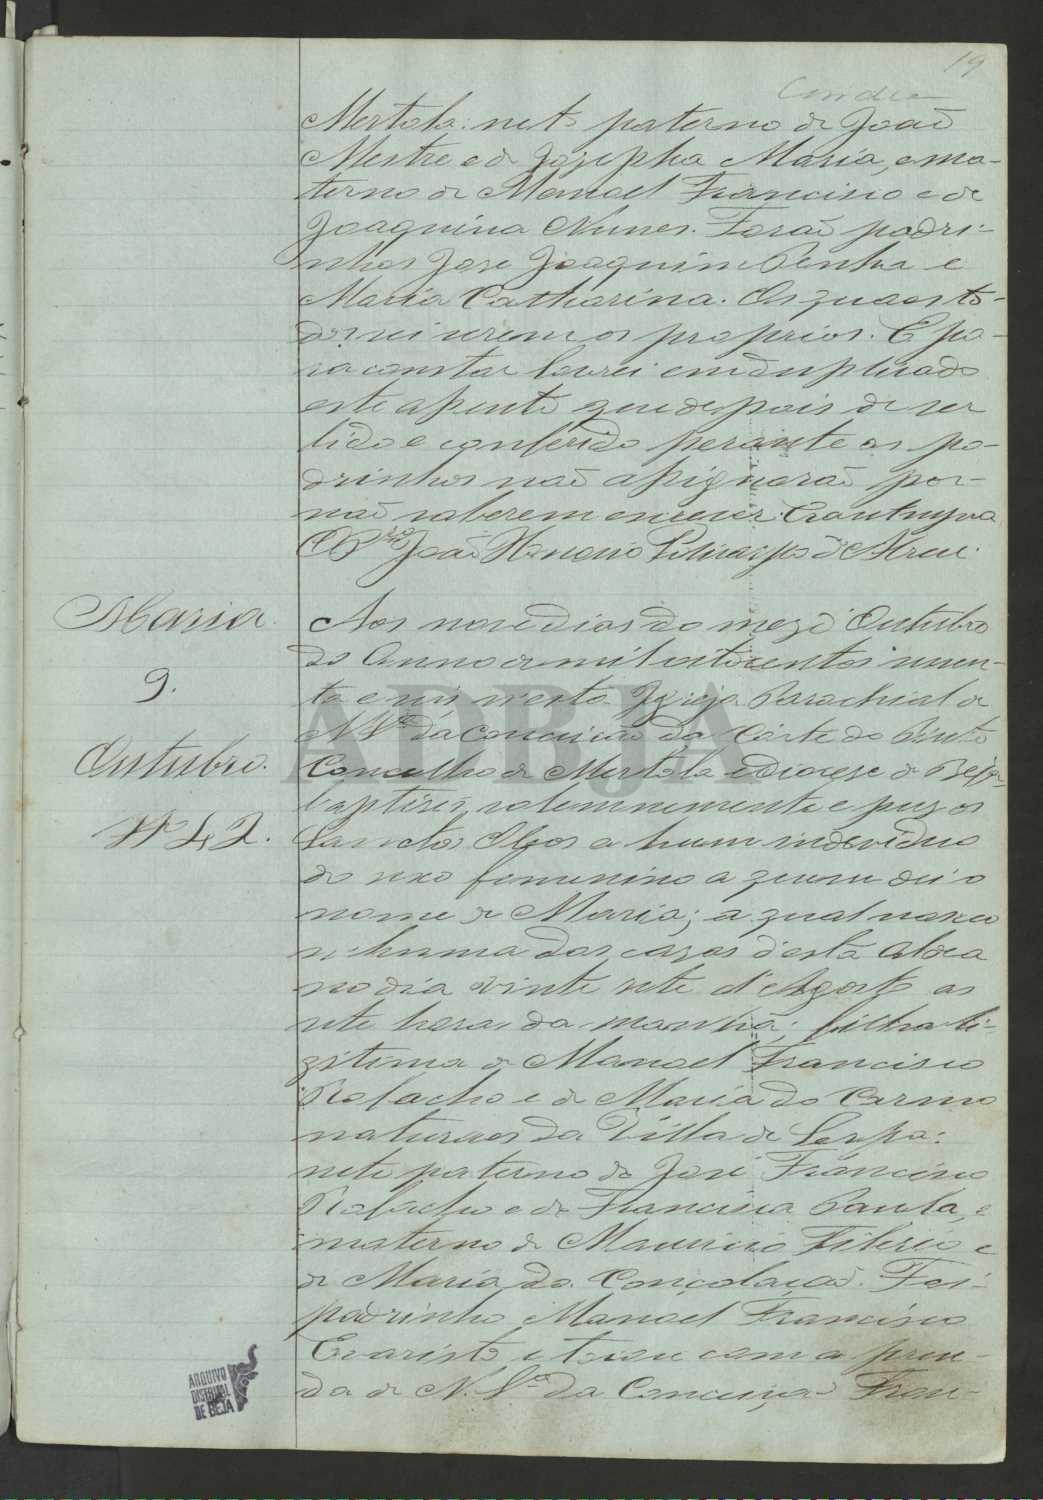 19
Mertola: neto paterno de João
Mestre e de Jozepha Maria, e ma-
terno de Manoel Francisco e de
Joaquina Nunes. Forão padri-
nhos Jose Joaquim Penha e
Maria Catharina. Os quaes to-
dos sei serem os proprios. E pa-
ra constar lavrei em duplicado
este aſsento que depois de ser
lido e conferido perante os pa-
drinhos não aſsignarão por
não saberem escrever. Era ut supra
O P.e João d'Abreu.
Maria.
9.
Outubro.
Nº 42.
Aos nove dias do mez d'Outubro
do Anno de mil oitocentos noven-
ta e seis n'esta Igreja Parochial de
N. Sra. da Conceição da Corte do Pinto
Concelho de Mertola e Diocese de Beja
baptisei solemnemente e puz os
Sanctos Oleos a hum individuo
do sexo femenino a quem dei o
nome de Maria; a qual nasceu
n'huma das cazas d'esta Aldea
no dia vinte sete d'Agosto as
sete horas da manhã; filha le-
gitima de Manoel Francisco
Rofacho e de Maria do Carmo
naturaes da Villa de Serpa:
neto paterno de José Francisco
Rofacho e de Francisca Paula, e
materno de Mauricio e
de Maria da Conçolação. Foi
padrinho Manoel Francisco
Evaristo, e tocou com a pren-
da de N. Sra. da Conceição Fran-
ADBJA
ARQUIVO
DISTRITAL
DE BEJA